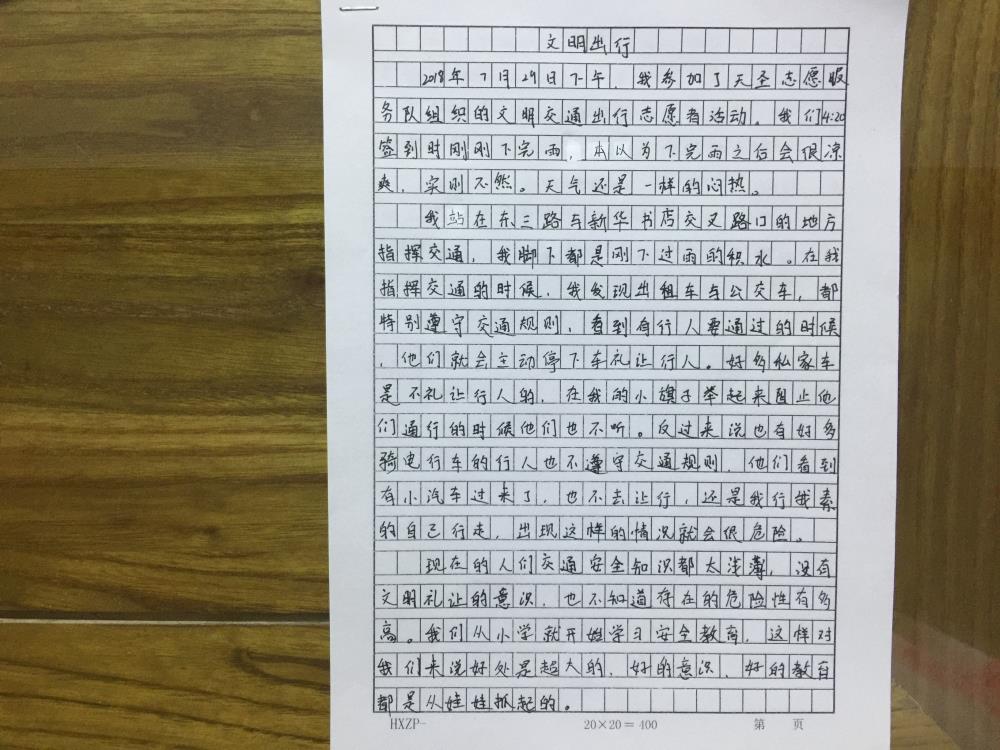 文明出行
2018年7月29日下午，我参加了天圣志愿服
务队组织的文明交通出行志愿者活动。我们4:20
签到时刚刚下完雨，本以为下完雨之后会很凉
爽，实则不然。天气还是一样的闷热。
我站在东三路与新华书店交叉路口的地方
指挥交通，我脚下都是刚下过雨的积水。在我
指挥交通的时候，我发现出租车与公交车，都
特别遵守交通规则，看到有行人要通过的时候
，他们就会主动停下车礼让行人。好多私家车
是不礼让行人的，在我的小旗子举起来阻止他
们通行的时候他们也不听。反过来说也有好多
骑电行车的行人也不遵守交通规则，他们看到
有小汽车过来了，也不去让行，还是我行我素
的自己行走，出现这样的情况就会很危险。
现在的人们交通安全知识都太浅薄，没有
文明礼让的意识，也不知道存在的危险性有多
高。我们从小学就开始学习安全教育，这样对
我们来说好处是超大的，好的意识，好的教育
都是从娃娃抓起的。
HXZP-
20×20＝400
第 页